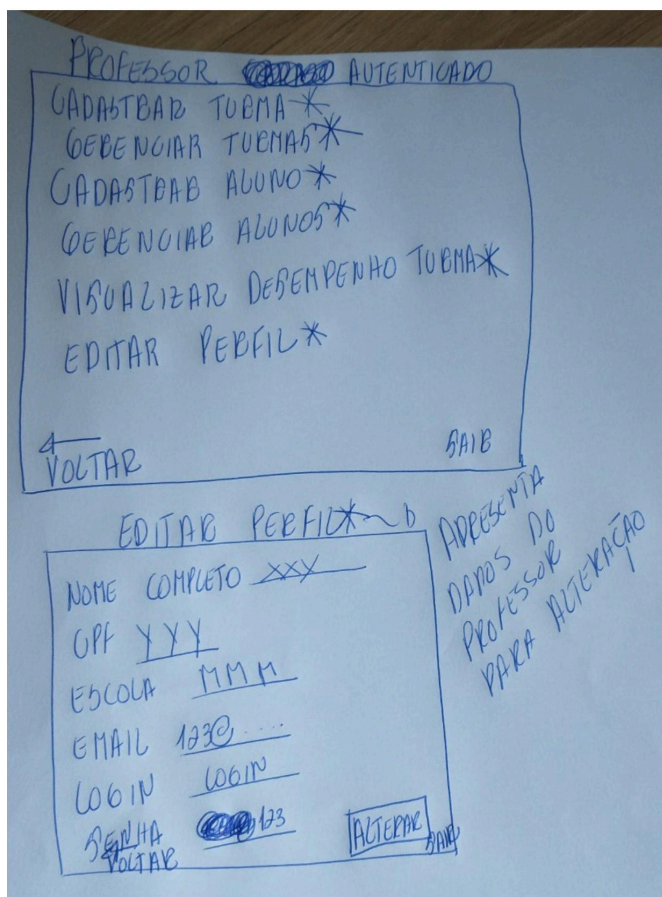 PROFESSOR AUTENTICADO
CADASTRAR TURMA*
GERENCIAR TURMAS*
CADASTRAR ALUNO*
GERENCIAR ALUNOS*
VISUALIZAR DESEMPENHO TURMA*
EDITAR PERFIL*
VOLTAR SAIR
EDITAR PERFIL*
APRESENTA
DADOS DO
PROFESSOR
PARA ALTERAÇÃO
NOME COMPLETO XXY
CPF YYY
ESCOLA MMM
EMAIL 123@....
LOGIN LOGIN
SENHA 123
VOLTAR ALTERAR SAIR